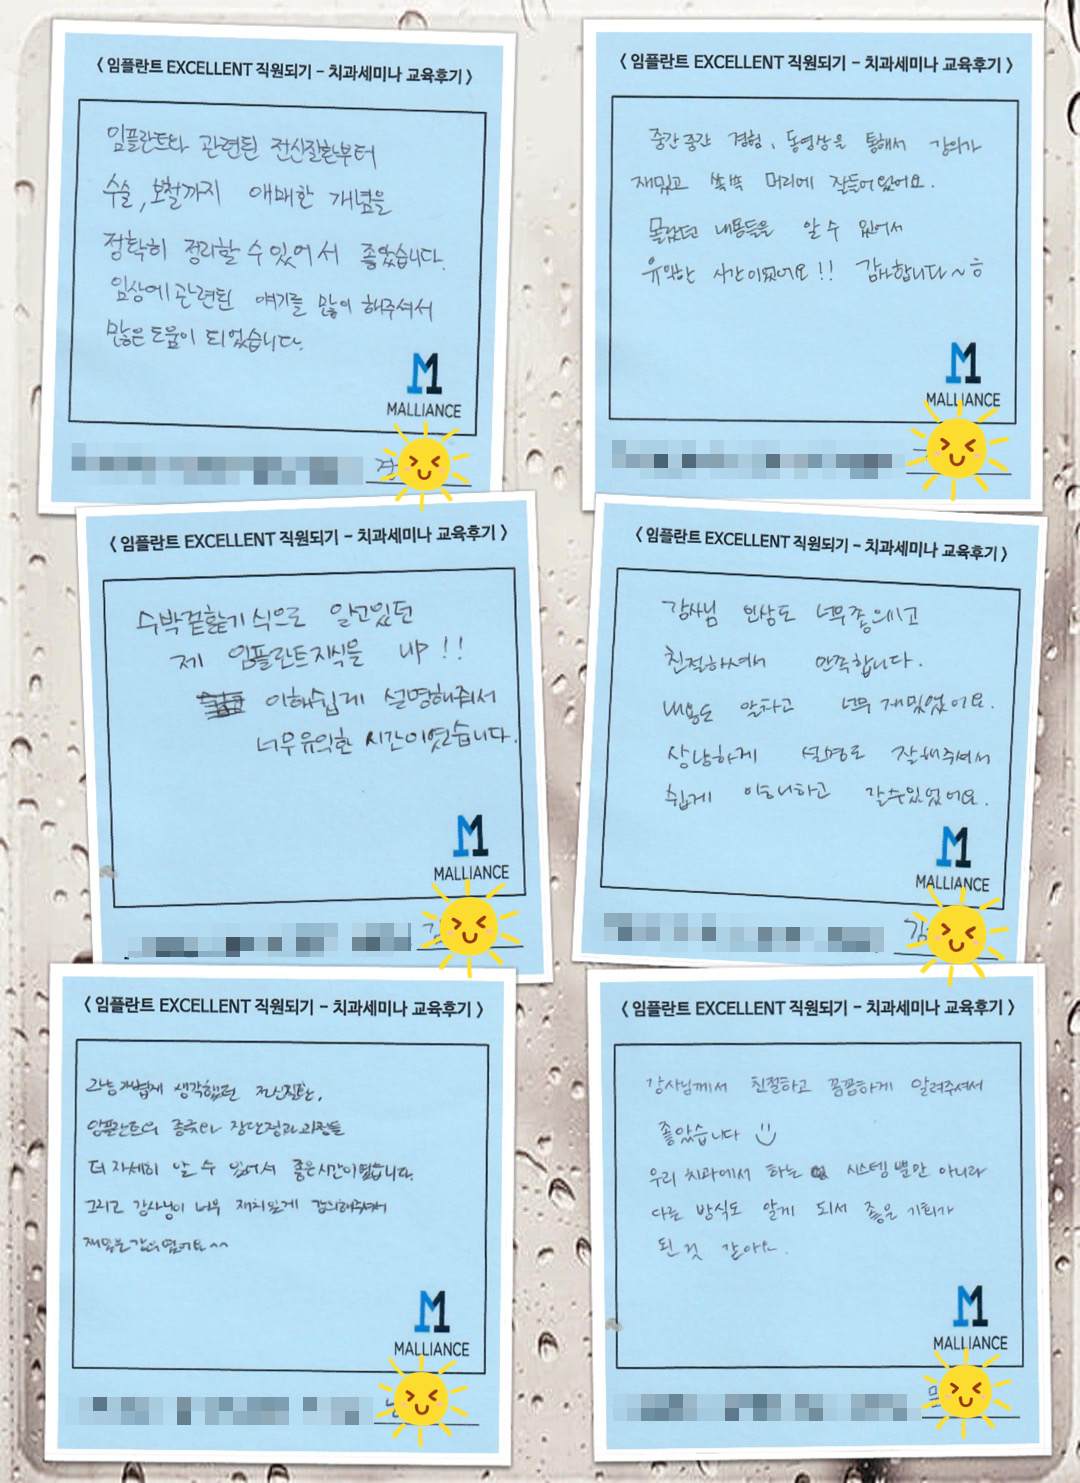 < 임플란트 EXCELLENT 직원되기 - 치과세미나 교육후기 >
임플란트와 관련된 전신질환부터
수술, 보철까지 애매한 개념을
정확히 정리할 수 있어서 좋았습니다.
임상에 관련된 얘기를 많이 해주셔서
많은 도움이 되었습니다.
MALLIANCE
< 임플란트 EXCELLENT 직원되기 - 치과세미나 교육후기 >
중간중간 경험, 동영상을 통해서 강의가
재밌고 쏙쏙 머리에 잘들어왔어요.
몰랐던 내용들을 알 수 있어서
유익한 시간이었어요!! 감사합니다~ㅎ
MALLIANCE
< 임플란트 EXCELLENT 직원되기 - 치과세미나 교육후기 >
수박겉핥기 식으로 알고있던
제 임플란트지식을 UP!!
이해쉽게 설명해줘서
너무유익한 시간이엿습니다.
MALLIANCE
< 임플란트 EXCELLENT 직원되기 - 치과세미나 교육후기 >
강사님 인상도 너무좋으시고
친절하셔서 만족합니다.
내용도 알차고 너무 재밌었어요.
상냥하게 설명도 잘해주셔서
쉽게 이해하고 갈수있었어요.
MALLIANCE
< 임플란트 EXCELLENT 직원되기 - 치과세미나 교육후기 >
그냥 가볍게 생각했던 전신질환,
임플란트의 종류와 장단점과 과정들
더 자세히 알 수 있어서 좋은시간이였습니다.
그리고 강사님이 너무 재치있게 강의해주셔서
재밌는강의였어요^^
MALLIANCE
< 임플란트 EXCELLENT 직원되기 - 치과세미나 교육후기 >
강사님께서 친절하고 꼼꼼하게 알려주셔서
좋았습니다
우리 치과에서 하는 시스템 뿐만 아니라
다른 방식도 알게 되서 좋은 기회가
된 것 같아요.
MALLIANCE